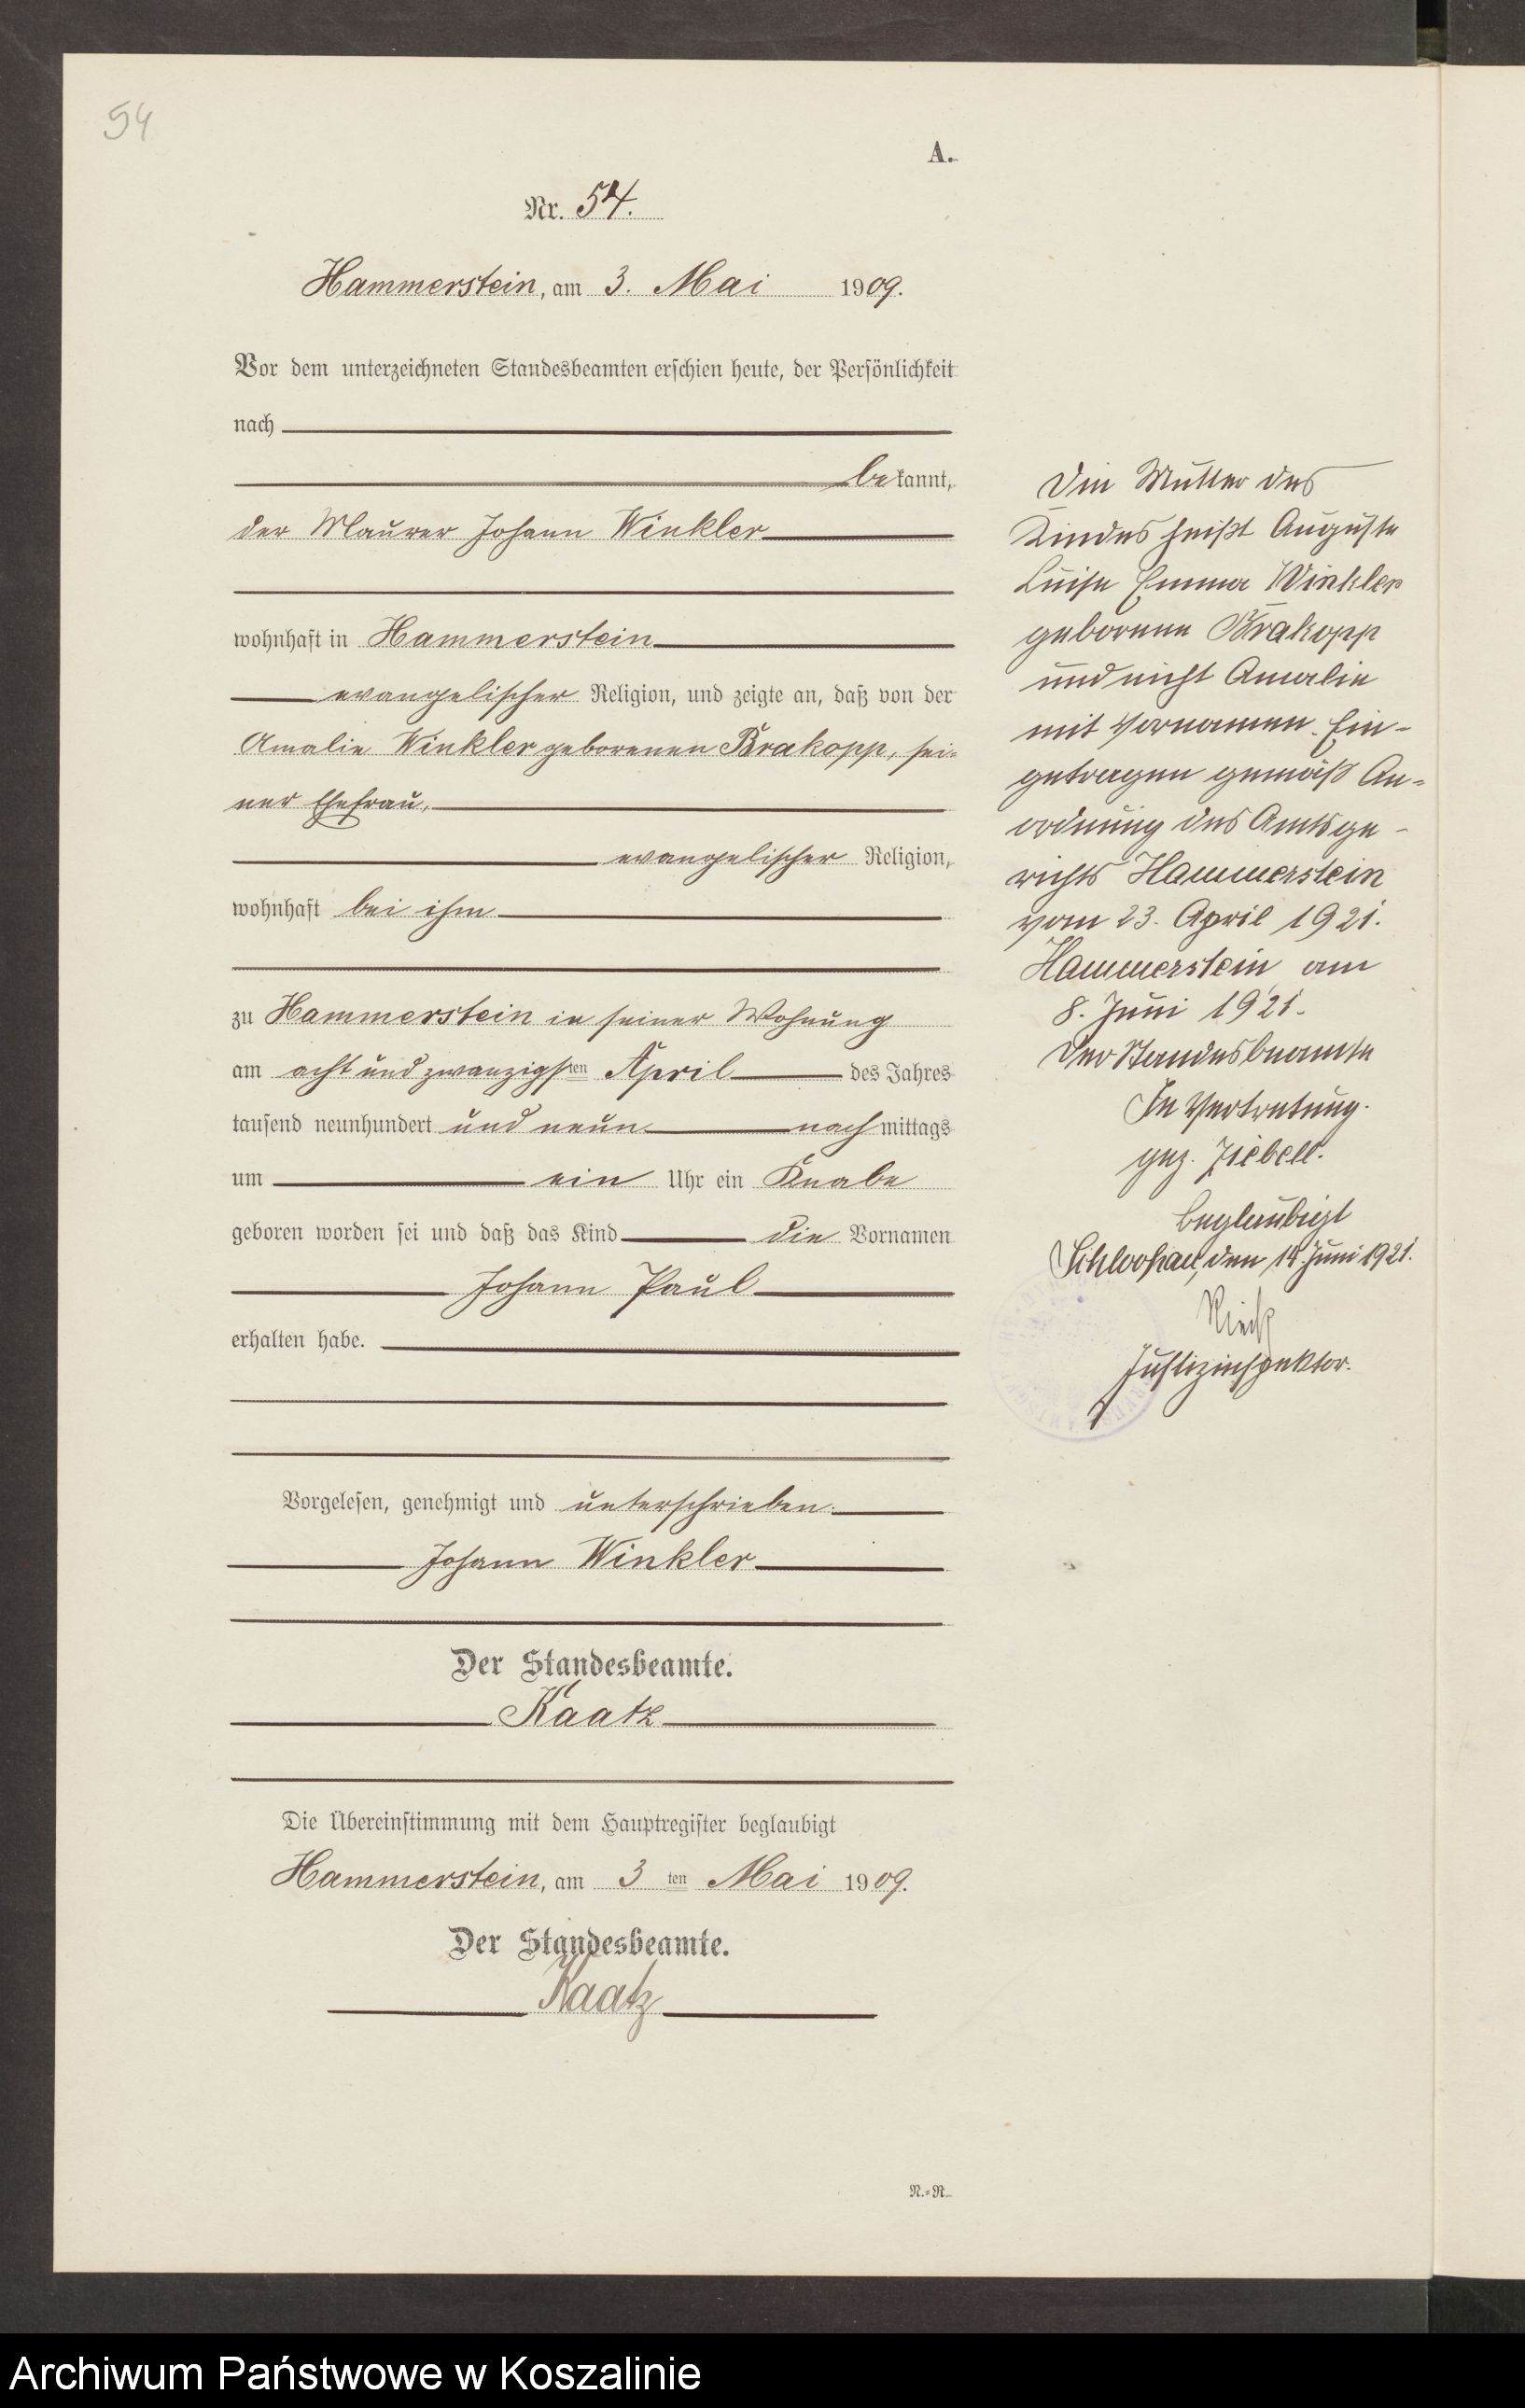 54
A.
Nr. 54.
Hammerstein, am 3. Mai 1909.
Vor dem unterzeichneten Standesbeamten erschien heute, der Persönlichkeit
nach
bekannt,
der Maurer Johann Winkler
wohnhaft in Hammerstein
evangelischer Religion, und zeigte an, daß von der
Amalie Winkler geborenen Brakopp, sei-
ner Ehefrau,
evangelischer Religion,
wohnhaft bei ihm
zu Hammerstein in seiner Wohnung
am acht und zwanzigsten April des Jahres
tausend neunhundert und neun nachmittags
um ein Uhr ein Knabe
geboren worden sei und daß das Kind die Vornamen
Johann Paul
erhalten habe.
Vorgelesen, genehmigt und unterschrieben.
Johann Winkler
Der Standesbeamte.
Kaatz
Die Übereinstimmung mit dem Hauptregister beglaubigt
Hammerstein, am 3 ten Mai 1909.
Der Standesbeamte.
Kaatz
N.-R.
Die Mutter des
Kindes heißt Auguste
Luise Emma Winkler
geborene Brakopp
und nicht Amalie
mit Vornamen. Ein-
getragen gemäß An-
ordnung des Amtsge-
richts Hammerstein
vom 23. April 1921.
Hammerstein am
8. Juni 1921.
Der Standesbeamte
In Vertretung.
gez. Ziebell.
Beglaubigt
Schlochau, den 14 Juni 1921.
Justizinspektor.
Archiwum Państwowe w Koszalinie